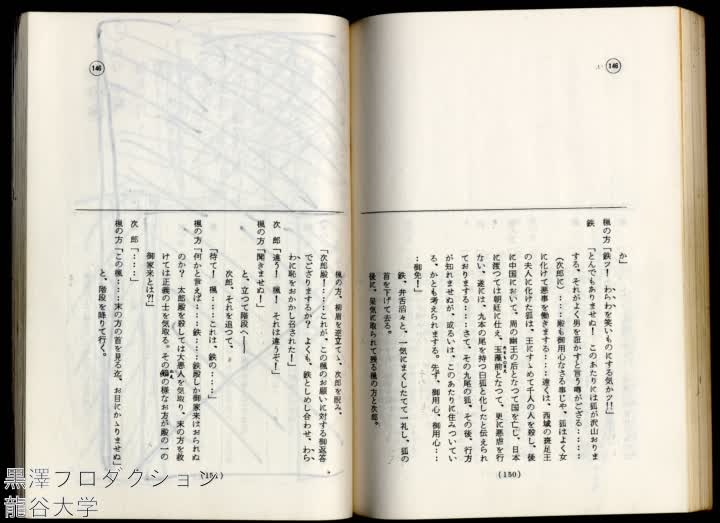 146
か」
楓の方「鉄ッ! わらわを笑いものにする気かッ!!」
鉄 「とんでもありませぬ! このあたりには狐が沢山おりま
する、それがよく男を誑かすと言う噂がござる‥‥‥
(次郎に)‥‥‥殿も御用心なさる事じゃ、狐はよく女
に化けて悪事を働きまする‥‥‥遠くは、西域の斑足王
の夫人に化けた狐は、王にすゝめて千人の人を殺し、後
に中国において、周の幽王の后となつて国を亡し、日本
に渡つては朝廷に仕え、玉藻前となつて、更に悪虐を行
ない、遂には、九本の尾を持つ白狐と化したと伝えられ
ておりまする‥‥さて、その九尾の狐、その後、行方
が知れませぬが、或るいは、このあたりに住みついてい
る、かとも考えられまする。先ず、御用心、御用心‥‥
‥御免!」
鉄、弁舌沿々と、一気にまくしたてて一礼し、狐の
首を下げて去る。
後に、呆気に取られて残る楓の方と次郎。
(150)
146
楓の方、柳眉を逆立てゝ、次郎を睨み、
「次郎殿!‥‥これが、この楓のお願いに対する御返答
でござりまするか? よくも、鉄としめし合わせ、わら
わに恥をおかかし召された!」
次 郎「違う! 楓! それは違うぞ!」
楓の方「聞きませぬ!」
と、立つて階段へ——
次郎、それを追つて、
「待て! 楓‥‥これは、鉄の‥‥」
楓の方「何かと言えば‥‥鉄‥‥鉄殿しか御家来はおられぬ
のか? 太郎殿を殺しては大悪人を気取り、末の方を救
けては正義の士を気取る。その様なお方が殿の一の
御家来とは?!」
次 郎「‥‥」
楓の方「この楓‥‥末の方の首を見る迄、お目にかゝりませぬ」
と、階段を降りて行く。
(151)
黒澤プロダクション
龍谷大学